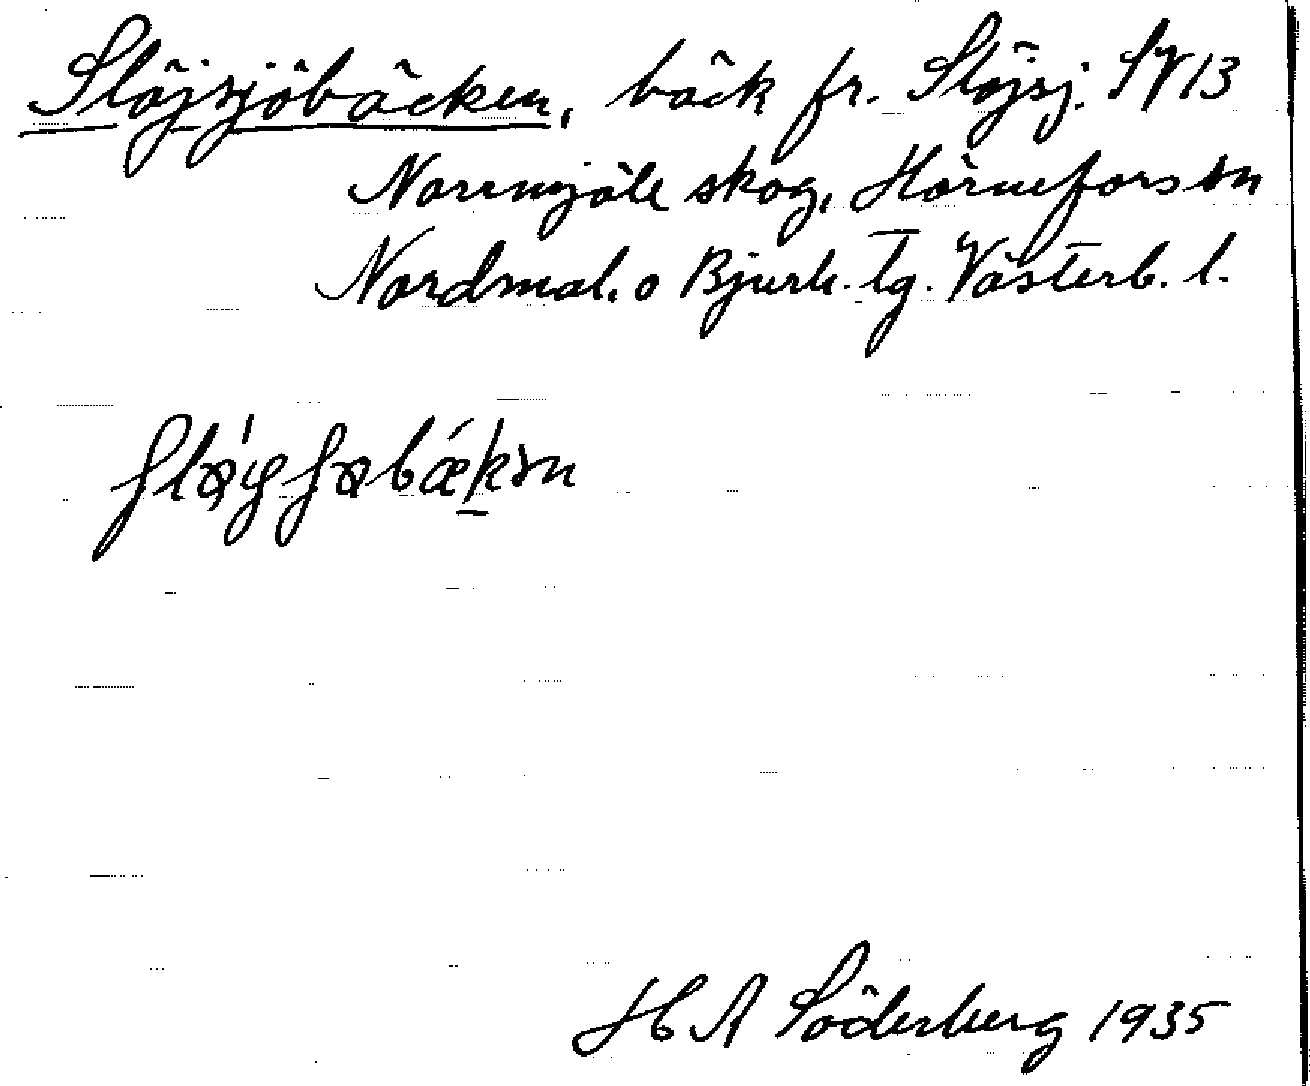 Slöjsjöbäcken, bäck fr. Slöjsj. SV 13
Norrmjöle skog, Hörnefors sn
Nordmal. o Bjurh. tg. Västerb. l.
H A Söderberg 1935